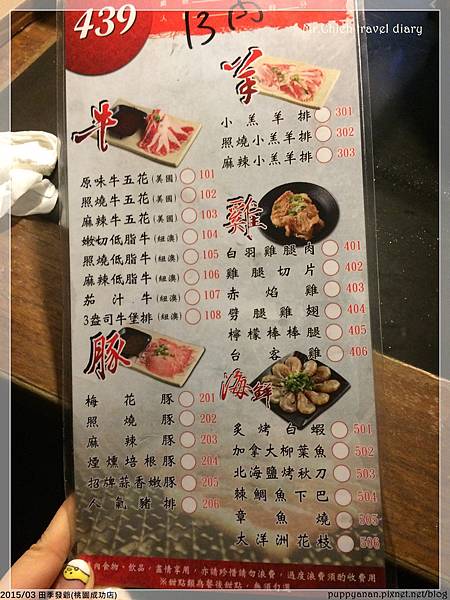 439
13肉
Mr.Chieh travel diary
牛
原味牛五花(美國) 101
照燒牛五花(美國) 102
麻辣牛五花(美國) 103
嫩切低脂牛(紐澳) 104
照燒低脂牛(紐澳) 105
麻辣低脂牛(紐澳) 106
茄汁牛(紐澳) 107
3盎司牛堡排(紐澳) 108
豚
梅花豚 201
照燒豚 202
麻辣豚 203
煙燻培根豚 204
招牌蒜香嫩豚 205
人氣豬排 206
羊
小羔羊排 301
照燒小羔羊排 302
麻辣小羔羊排 303
雞
白羽雞腿肉 401
雞腿切片 402
赤焰雞 403
劈腿雞翅 404
檸檬棒棒腿 405
台客雞 406
海鮮
炙烤白蝦 501
加拿大柳葉魚 502
北海鹽烤秋刀 503
棘鯛魚下巴 504
章魚燒 505
大洋洲花枝 506
肉食物、飲品，盡情享用，亦請珍惜請勿浪費，過度浪費須酌收費用
※甜點類為餐後甜點，無須勾選
2015/03 田季發爺(桃園成功店)
puppyanan.pixnet.net/blog